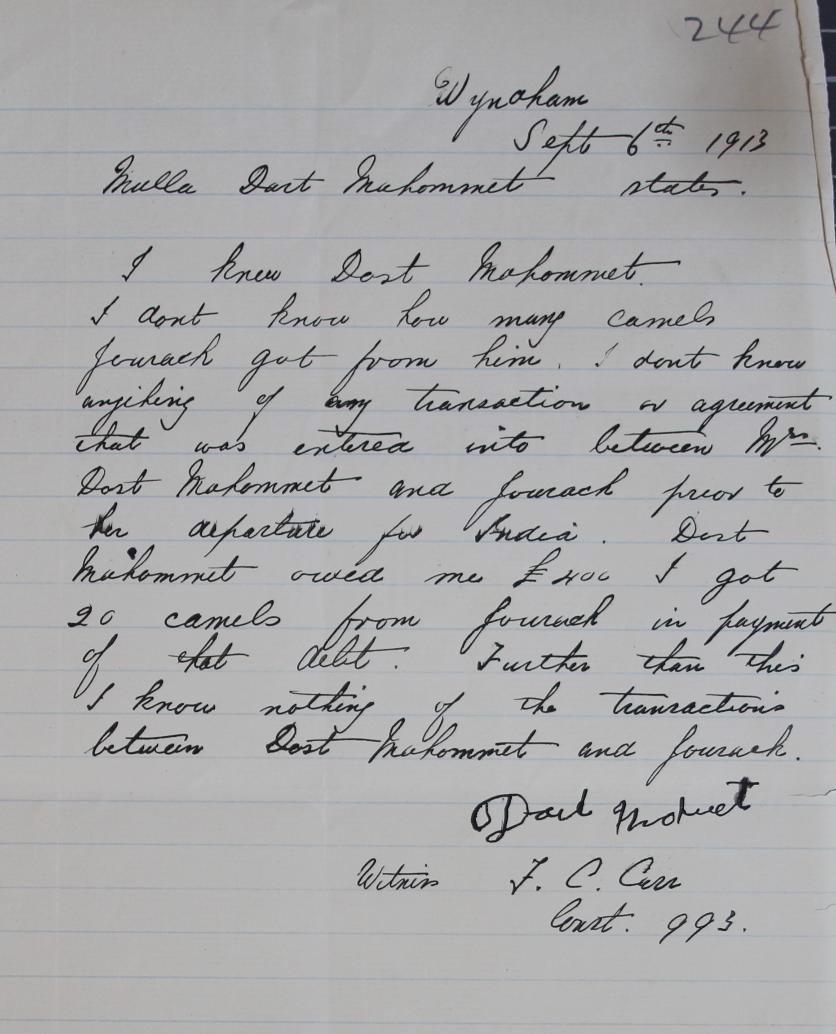 244
Wyndham
Sept 6th 1913
Mulla Dart Mahommet states.
I knew Dost Mahommet.
I dont know how many camels
Jourack got from him. I dont know
anything of any transaction or agreement
that was entered into between Mrs.
Dost Mahommet and Jourack prior to
her departure for India. Dost
Mahommet owed me £400 I got
20 camels from Jourack in payment
of that debt. Further than this
I know nothing of the transactions
between Dost Mahommet and Jourack.
Witness F. C. Carr
Const. 993.